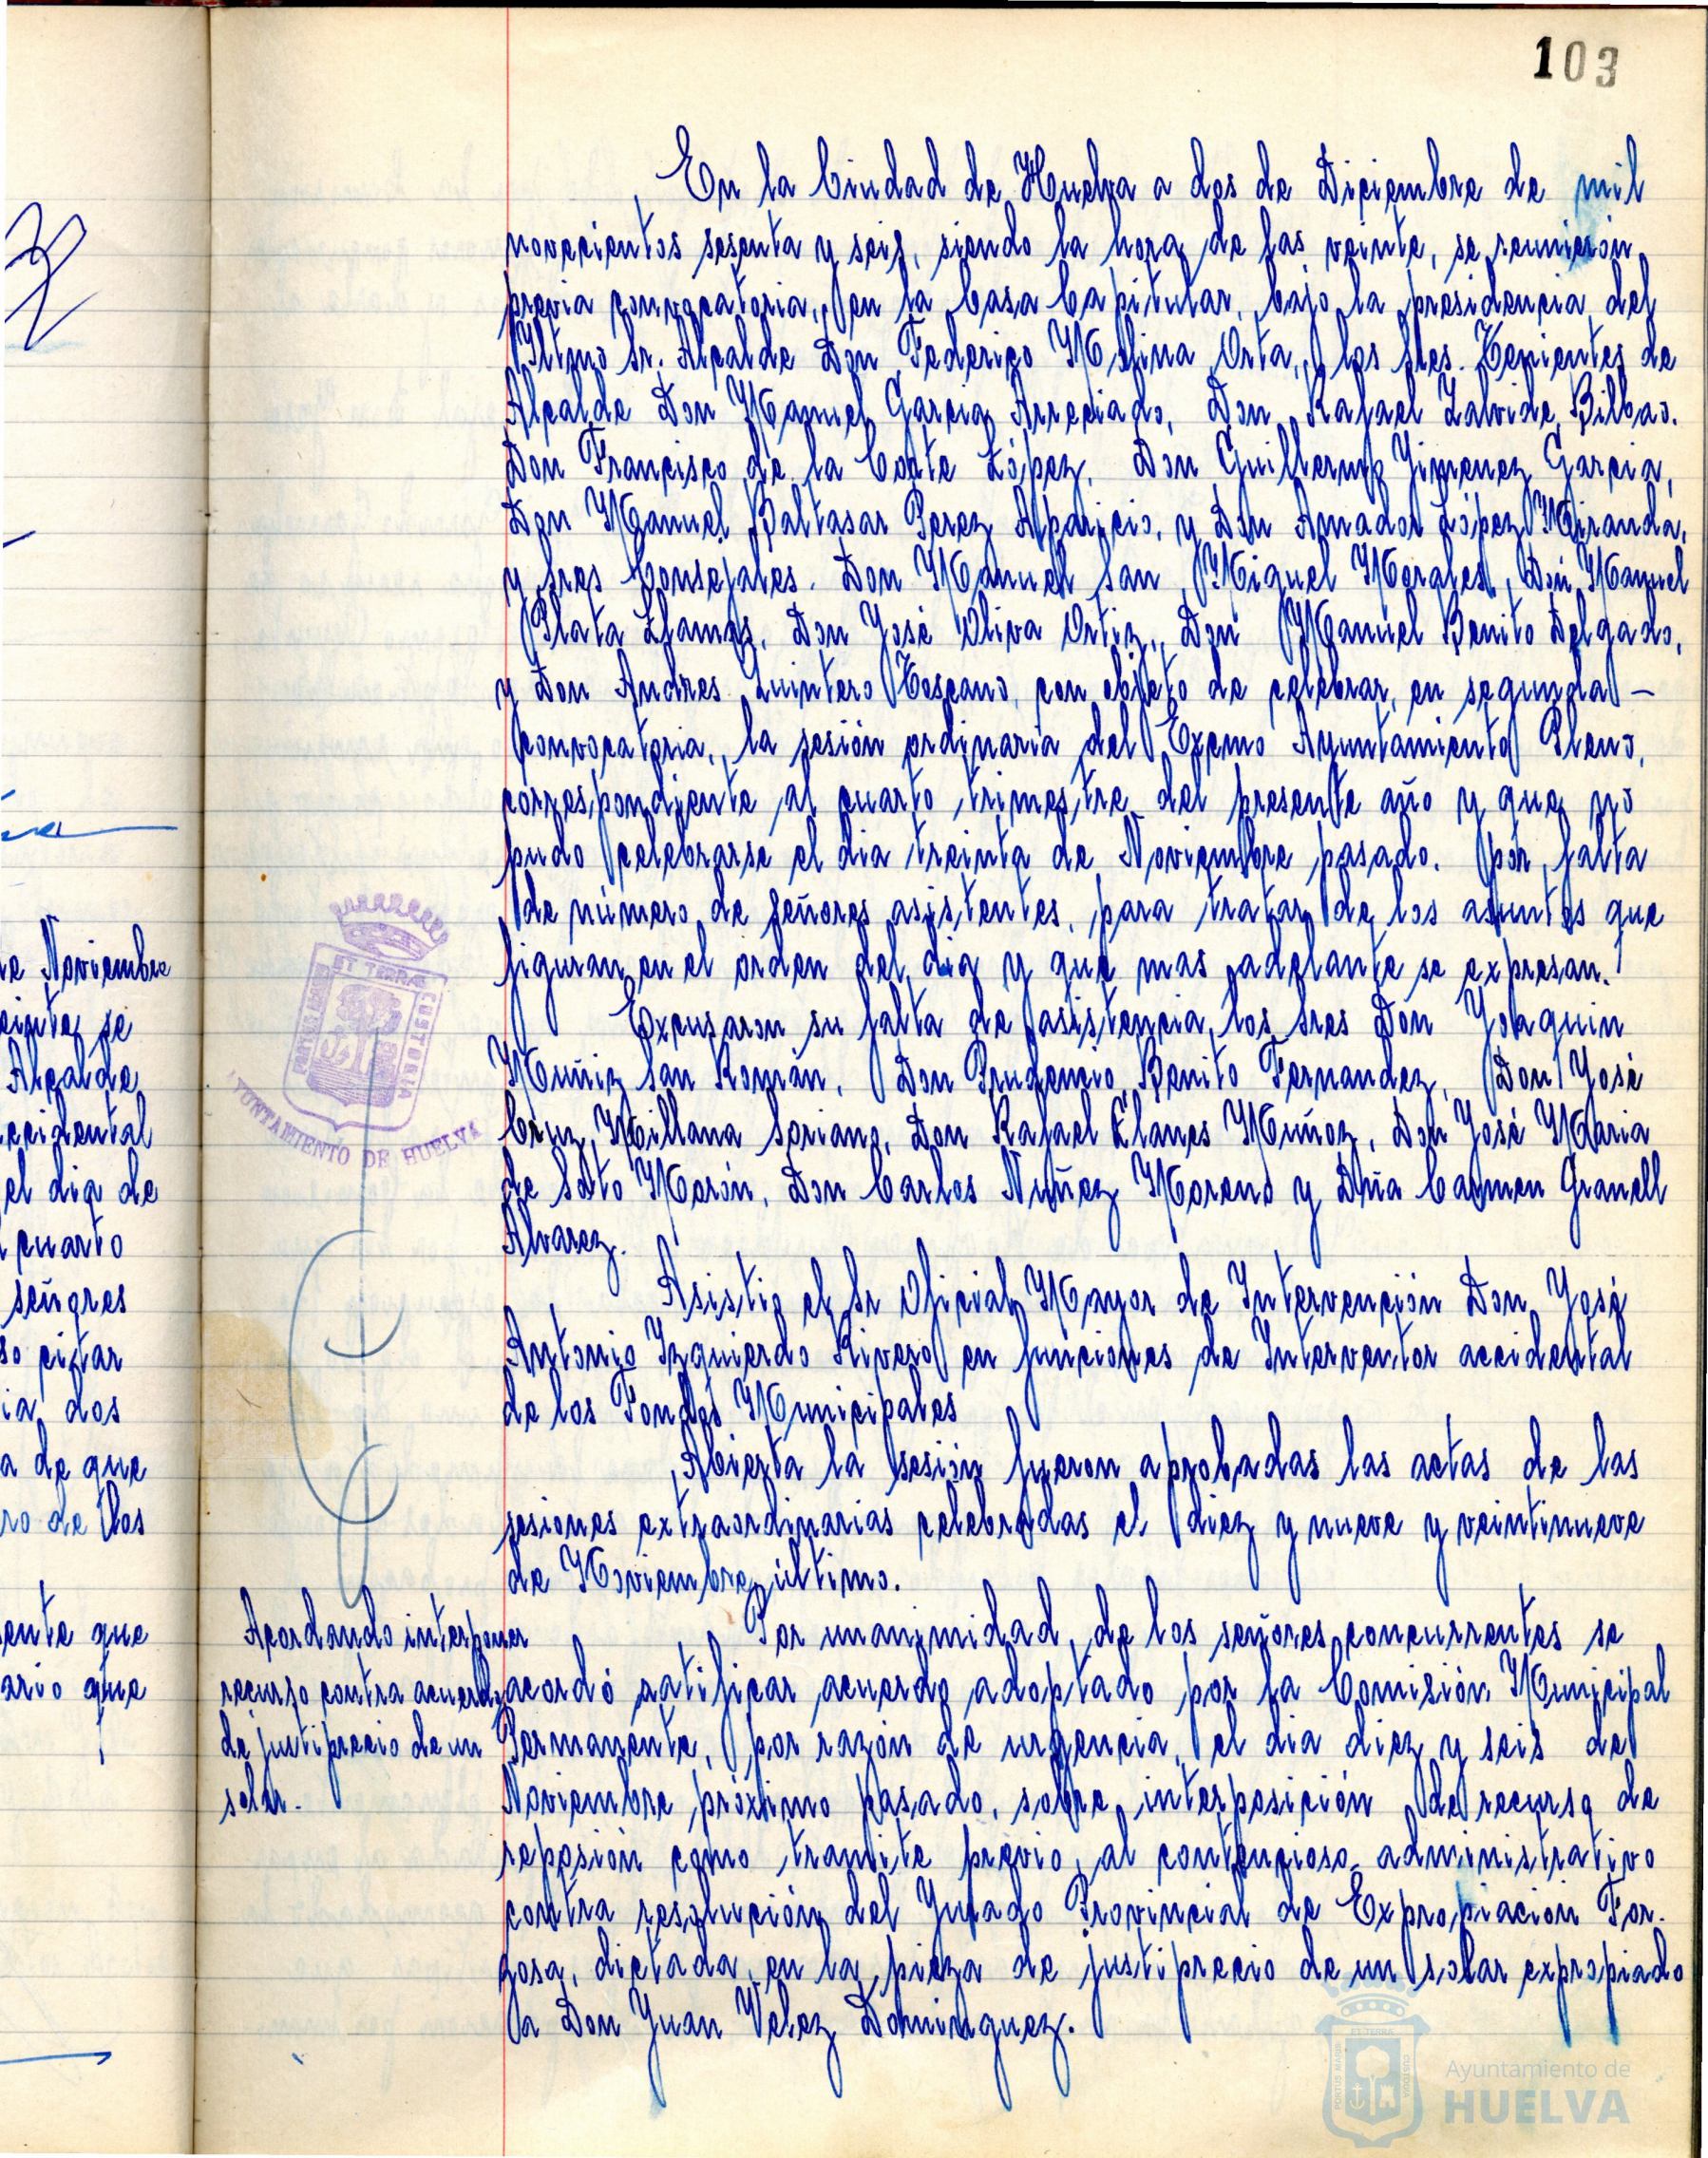 103
En la Ciudad de Huelva a dos de Diciembre de mil
novecientos sesenta y seis, siendo la hora de las veinte, se reunieron,
previa convocatoria, en la Casa Capitular, bajo la presidencia del
Iltmo Sr. Alcalde Don Federico Molina Orta, los Sres. Tenientes de
Alcalde Don Manuel Garcia Arreciado, Don Rafael Zalvide Bilbao.
Don Francisco de la Corte López, Don Guillermo Jimenez Garcia,
Don Manuel Baltasar Perez Aparicio, y Don Amador López Miranda,
y Sres Consejales. Don Manuel San Miguel Morales, Don Manuel
Plata Llamas, Don José Oliva Ortiz, Don Manuel Benito Delgado,
y Don Andres Quintero Toscano, con objeto de celebrar, en segunda -
convocatoria, la sesión ordinaria del Excmo Ayuntamiento Pleno,
correspondiente al cuarto trimestre del presente año y que no
pudo celebrarse el dia treinta de Noviembre pasado. por falta
de número de señores asistentes, para tratar de los asuntos que
figuran en el orden del dia y que mas adelante se expresan.
Excusaron su falta de asistencia los Sres Don Joaquin
Muñiz San Román, Don Prudencio Benito Fernandez, Don José
Cruz Millana Soriano, Don Rafael Llanes Muñoz, Don José Maria
de Soto Morón, Don Carlos Nuñez Moreno y Dña Carmen Granell
Alvarez.
Asistio el Sr Oficial Mayor de Intervención Don José
Antonio Izquierdo Rivero en funciones de Interventor accidental
de los Fondos Municipales
Abierta la sesión fueron aprobadas las actas de las
sesiones extraordinarias celebradas el diez y nueve y veintinueve
de Noviembre último.
Acordando interponer
recurso contra acuerdo
de justiprecio de un
solar.
Por unanimidad de los señores concurrentes se
acordó ratificar acuerdo adoptado por la Comisión Municipal
Permanente, por razón de urgencia, el dia diez y seis de
Noviembre próximo pasado, sobre interposición de recurso de
reposición como tramite previo al contencioso administrativo
contra resolución del Jurado Provincial de Expropiación For-
zosa, dictada en la pieza de justiprecio de un solar expropiado
a Don Juan Vélez Dominguez.
de Noviembre
se
Alcalde
accidental
el dia de
cuarto
señores
citar
dos
a de que
de los
que
que
PORTUS MARIS ET TERRAE CUSTODIA
AYUNTAMIENTO DE HUELVA
Ayuntamiento de
HUELVA